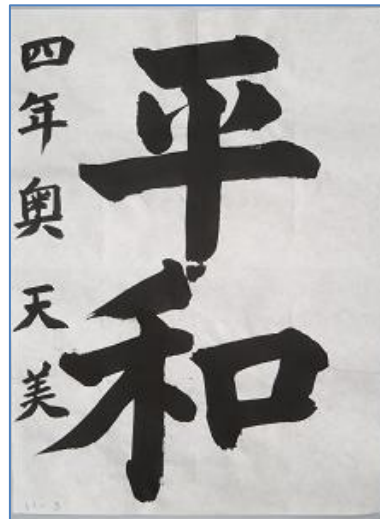 平和
四年奥天美